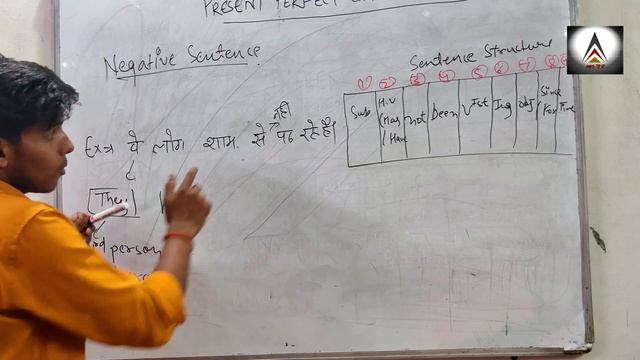 PRESENT PERFECT
Negative Sentence
Sentence Structure
① ② ③ ④ ⑤ ⑥ ⑦ ⑧
Sub H.V (Has / Have not been V1st Ing obj Since For Time
नहीं
Ex⇒ वे लोग शाम से पढ़ रहे हैं।
They
person